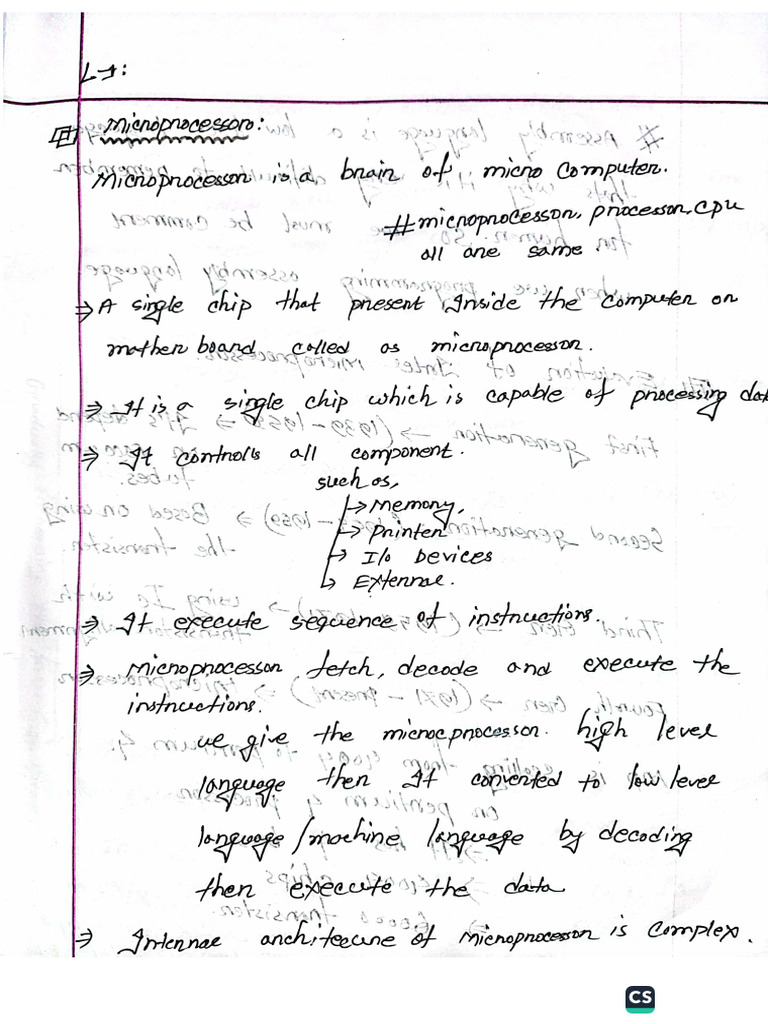 L-1:
Microprocessor:
Microprocessor is a brain of micro computer.
# microprocessor, processor, cpu
all are same.
⇒ A single chip that present inside the computer or
mother board called as microprocessor.
⇒ It is a single chip which is capable of processing dat
⇒ It controlls all component.
such as,
→ Memory,
→ Printer
→ I/o Devices
→ External.
⇒ It execute sequence of instructions.
⇒ Microprocessor fetch, decode and execute the
instructions.
we give the microcprocessor. high level
language then It converted to low level
language/machine language by decoding
then execute the data
⇒ Internal architecure of microprocessor is complex.
CS